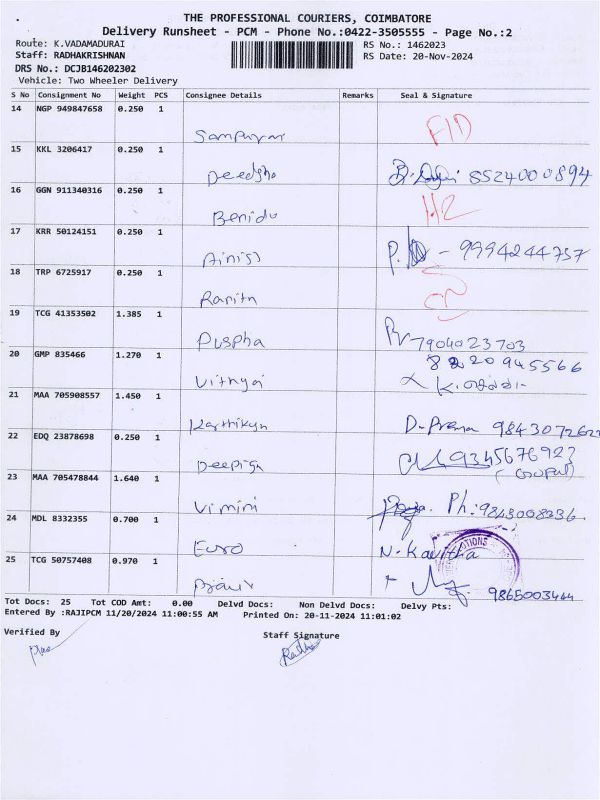 THE PROFESSIONAL COURIERS, COIMBATORE
Delivery Runsheet - PCM - Phone No.:0422-3505555 - Page No.:2
Route: K.VADAMADURAI
RS No.: 1462023
Staff: RADHAKRISHNAN
RS Date: 20-Nov-2024
DRS No.: DCJB146202302
Vehicle: Two Wheeler Delivery
S No Consignment No Weight PCS Consignee Details Remarks Seal & Signature
14 NGP 949847658 0.250 1
Sampurna
15 KKL 3206417 0.250 1
Deedsha 8524000894
16 GGN 911340316 0.250 1
Benidu
17 KRR 50124151 0.250 1
P. - 9994244757
18 TRP 6725917 0.250 1
Ranitn
19 TCG 41353502 1.385 1
Puspha 7904023703
20 GMP 835466 1.270 1
8220945566
Vithyai
21 MAA 705908557 1.450 1
Karthikyn D. Prema
22 EDQ 23878698 0.250 1
Deepisa 9345676923
(Gopal)
23 MAA 705478844 1.640 1
Vimini Ph: 9843008336
24 MDL 8332355 0.700 1
Euro N. Kavitha
25 TCG 50757408 0.970 1
9865003444
Tot Docs: 25 Tot COD Amt: 0.00 Delvd Docs: Non Delvd Docs: Delvy Pts:
Entered By :RAJIPCM 11/20/2024 11:00:55 AM Printed On: 20-11-2024 11:01:02
Verified By Staff Signature